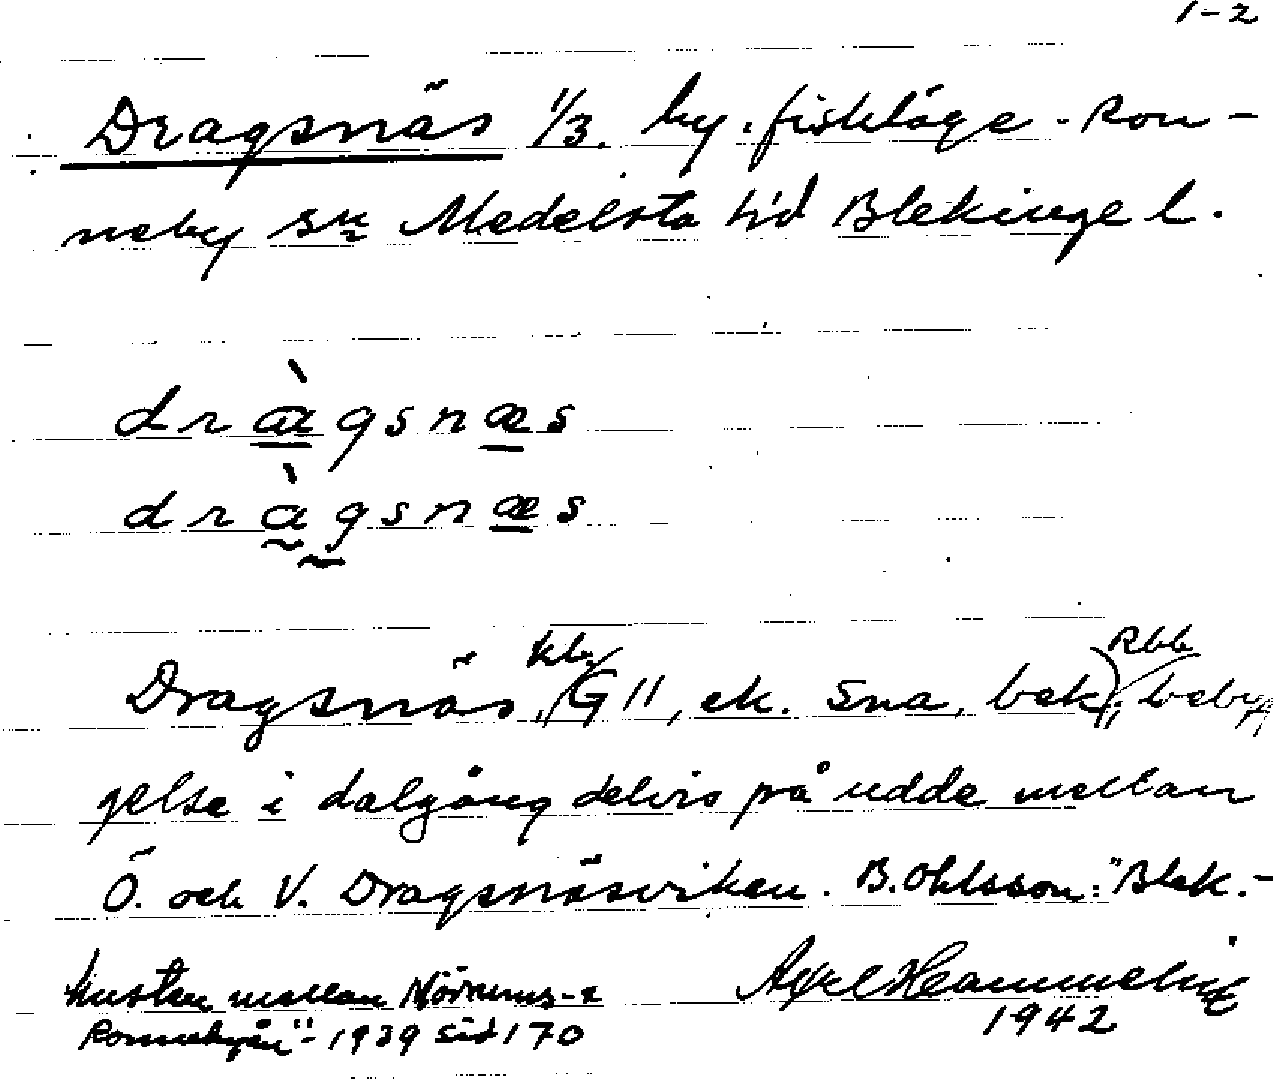 1-2
Dragsnäs 1/3. by, fiskeläge - Ron-
neby sn Medelsta hd Blekinge l.
dràgsnæs
dràgsnæs
kb. Rbb
Dragsnäs, G11, ek. Sna, bek, beby-
gelse i dalgång delvis på udde mellan
Ö. och V. Dragsnäsviken. B. Ohlsson: "Blek.-
kusten mellan Mörrums- &
Ronnebyån" - 1939 sid 170
Axel
1942